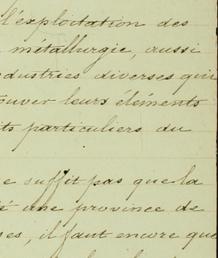 l'exploitation des
métallurgie, aussi
ndustries diverses qui
rouver leurs éléments
ts particuliers du
e suffit pas que la
é une province de
es, il faut encore que